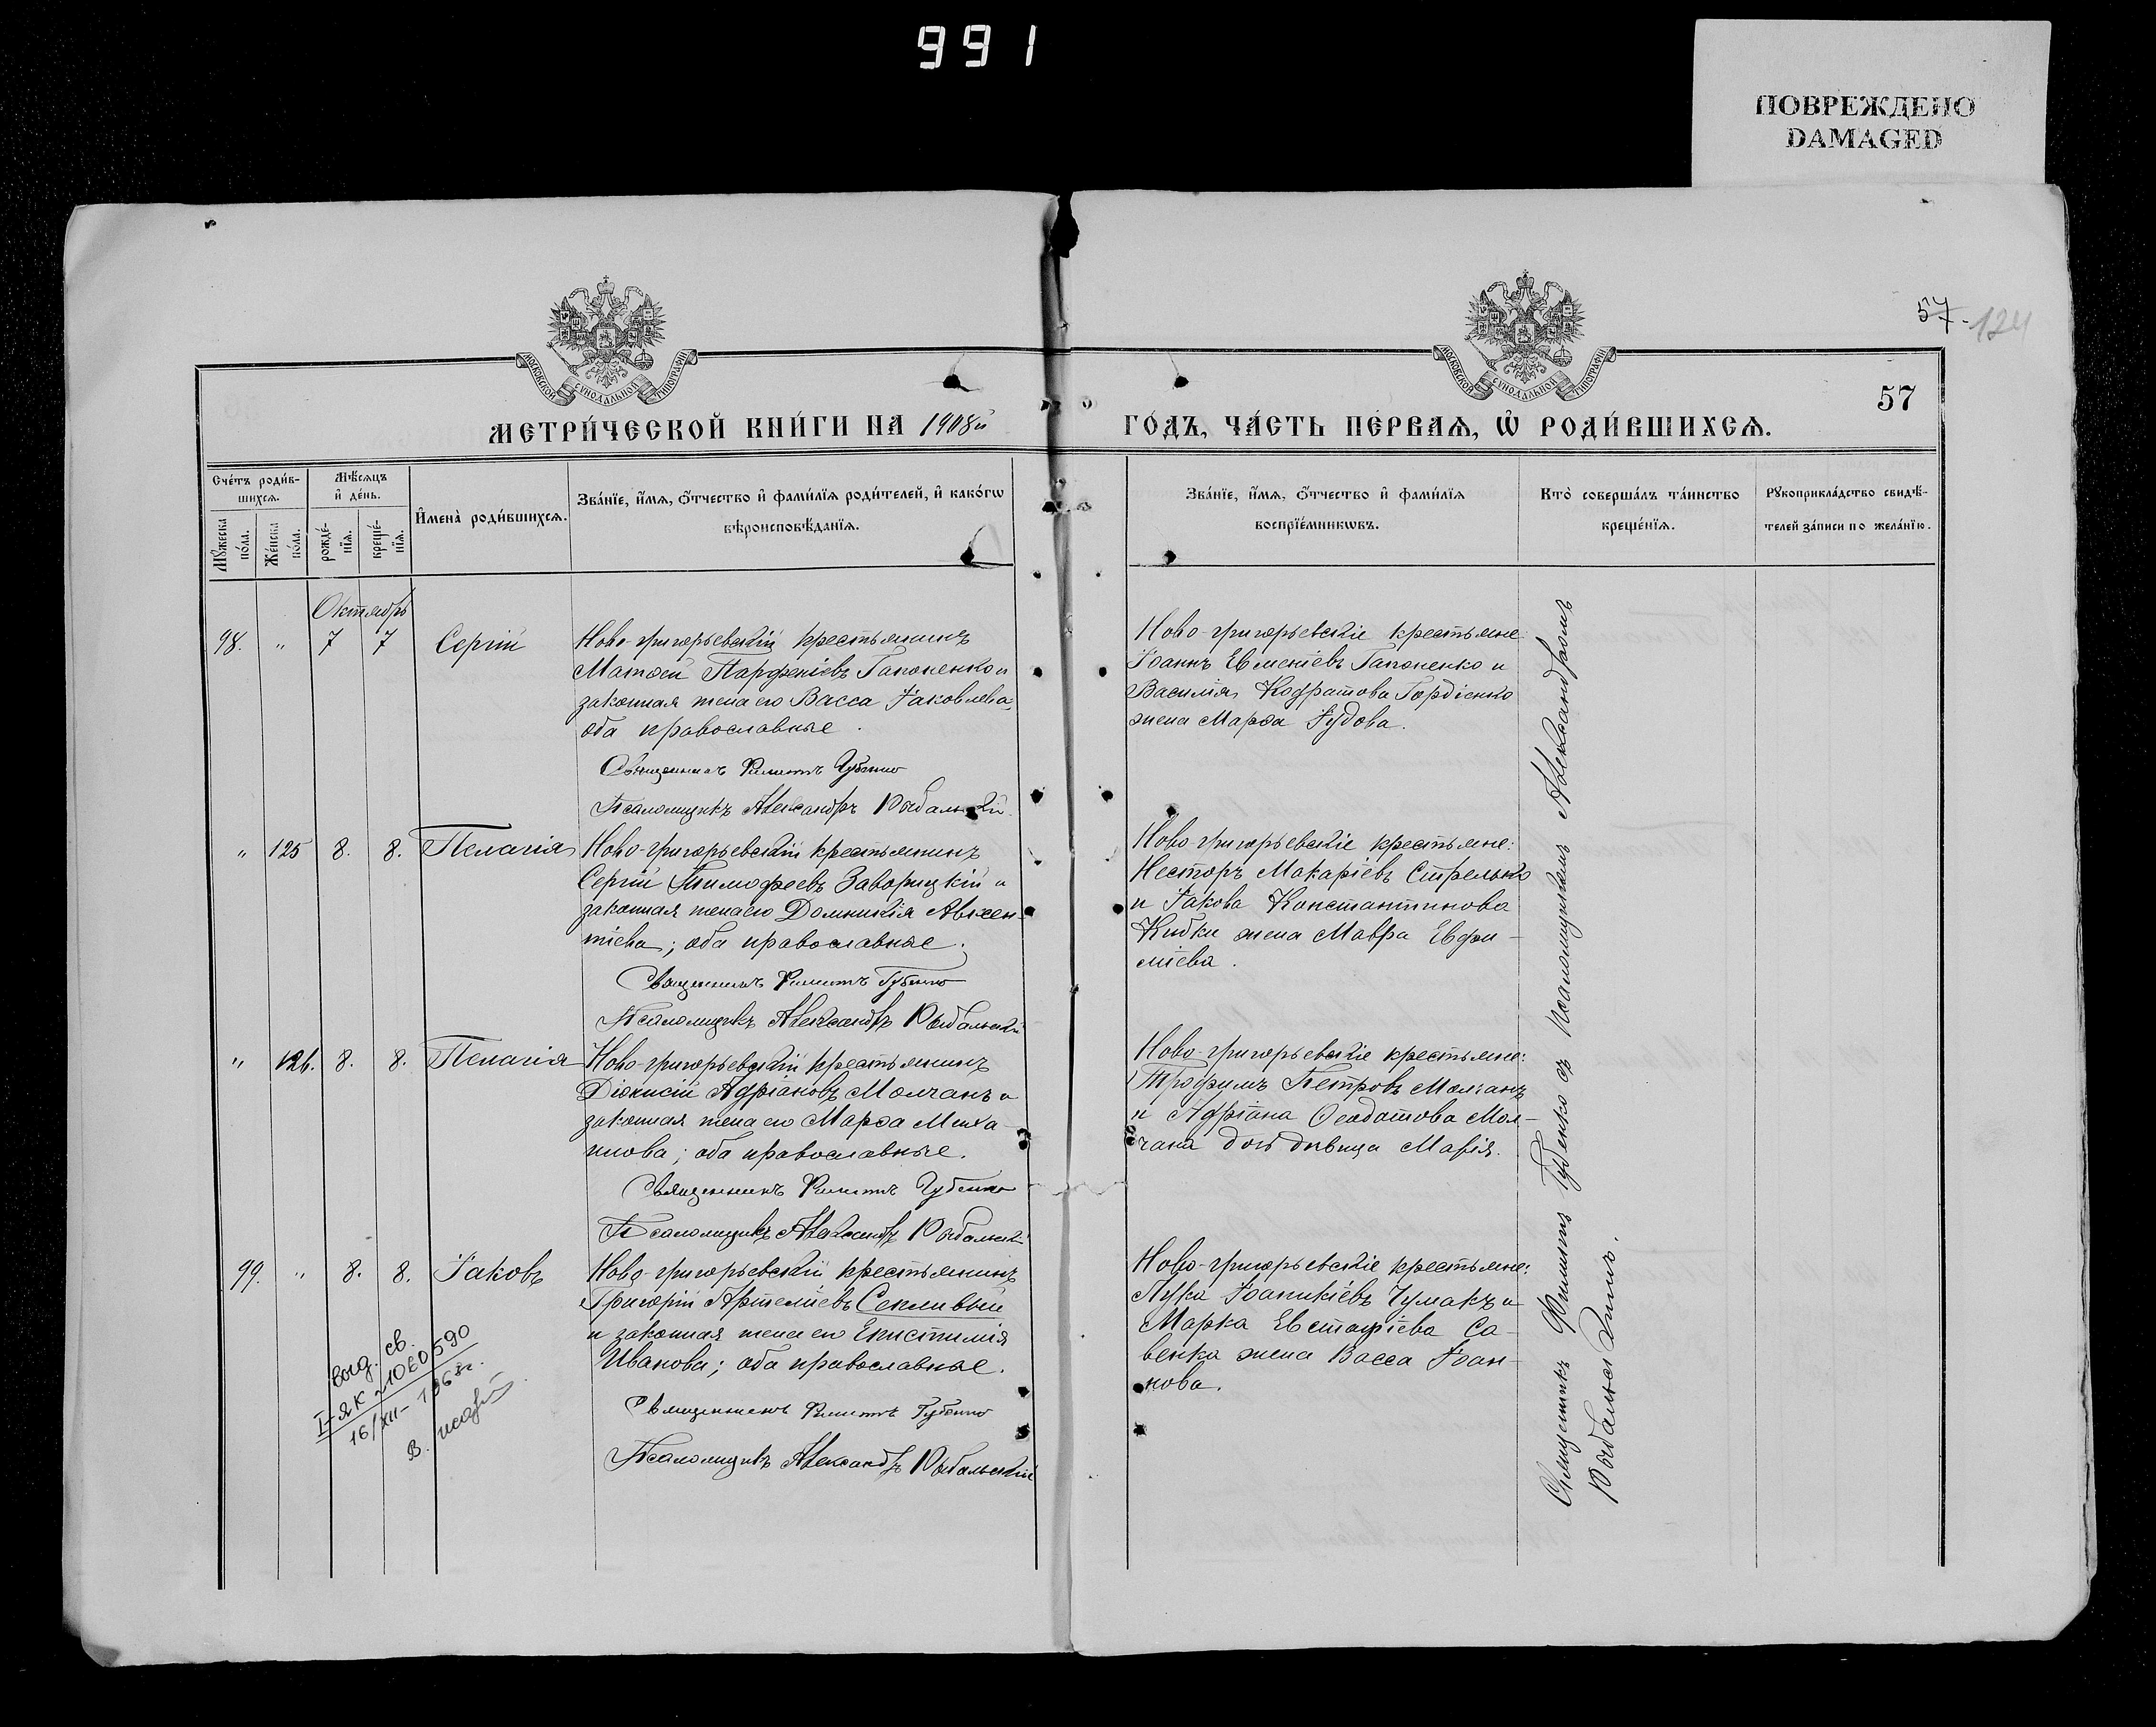 991
ПОВРЕЖДЕНО
DAMAGED
57.
124
57
МОСКОВСКОЙ СУНОДАЛЬНОЙ ТИПОГРАФІИ
МОСКОВСКОЙ СУНОДАЛЬНОЙ ТИПОГРАФІИ
МЕТРИ́ЧЕСКОЙ КНИ́ГИ НА 1908й ГО́ДЪ, ЧА́СТЬ ПЕ́РВАѦ, Ѡ҆ РОДИ́ВШИХСѦ.
Сче́тъ роди́в-
шихсѧ.
Мꙋ́жеска по́ла.
Же́нска по́ла.
Мѣ́сѧцъ
и҆ де́нь.
рожде́-нїѧ.
креще́-нїѧ.
И҆мена̀ роди́вшихсѧ.
Зва́нїе, и҆́мѧ, ѻ҆́тчество и҆ фами́лїѧ роди́телей, и҆ како́гѡ
вѣроисповѣ́данїѧ.
Зва́нїе, и҆́мѧ, ѻ҆́тчество и҆ фами́лїѧ
воспрїе́мникѡвъ.
Кто̀ соверша́лъ та́инство
креще́нїѧ.
Рꙋкоприкла́дство свидѣ́-
телей за́писи по жела́нїю.
Октябрь
98. " 7 7 Сергій
Ново-григорьевскій крестьянинъ
Матѳей Парфеніевъ Гапоненко и
законная жена его Васса Іаковлева,
оба православные.
Священникъ Филиппъ Губенко
Псаломщикъ Александръ Рыбальскій
Ново-григорьевскіе крестьяне:
Іоаннъ Евменіевъ Гапоненко и
Василія Кодратова Гордіенко
жена Марѳа Іудова.
" 125 8. 8. Пелагія
Ново-григорьевскій крестьянинъ
Сергій Тимофеевъ Заворицкій и
законная жена его Домникія Авксен-
тіева; оба православные.
Священникъ Филиппъ Губенко
Псаломщикъ Александръ Рыбальскій
Ново-григорьевскіе крестьяне:
Несторъ Макаріевъ Стрелько
и Іакова Константинова
Кибки жена Мавра Евфи-
міева.
" 126. 8. 8. Пелагія
Ново-григорьевскій крестьянинъ
Діонисій Адріановъ Молчанъ и
законная жена его Марѳа Миха-
илова; оба православные.
Священникъ Филиппъ Губенко
Псаломщикъ Александръ Рыбальскій
Ново-григорьевскіе крестьяне:
Трофимъ Петровъ Молчанъ
и Адріана Ѳеодотова Мол-
чана дочь дѣвица Марія.
99. " 8. 8. Іаковъ
Ново-григорьевскій крестьянинъ
Григорій Артеміевъ Секливый
и законная жена его Екистимія
Иванова; оба православные.
Священникъ Филиппъ Губенко
Псаломщикъ Александръ Рыбальскій
выд. св.
I-ЯК №1060590
16/XII-1968г.
Ново-григорьевскіе крестьяне:
Лука Іоанникіевъ Чумакъ и
Марка Евстафіева Са-
венка жена Васса Іоан-
нова.
Священникъ Филиппъ Губенко съ псаломщикомъ Александромъ
Рыбальскимъ.